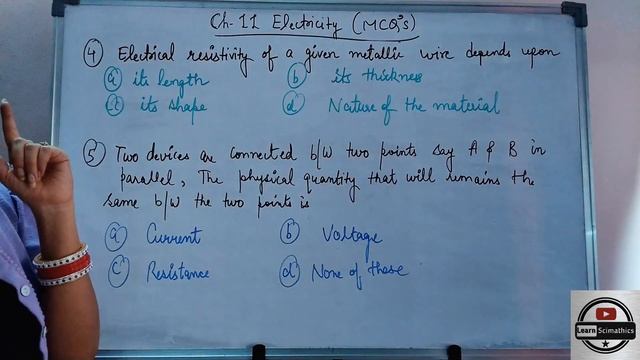 Ch-11 Electricity (MCQ's)
④ Electrical resistivity of a given metallic wire depends upon
ⓐ its length ⓑ its thickness
ⓒ its shape ⓓ Nature of the material
⑤ Two devices are connected b/w two points say A & B in
parallel, The physical quantity that will remains the
same b/w the two points is
ⓐ Current ⓑ Voltage
ⓒ Resistance ⓓ None of these
Learn Scimathics